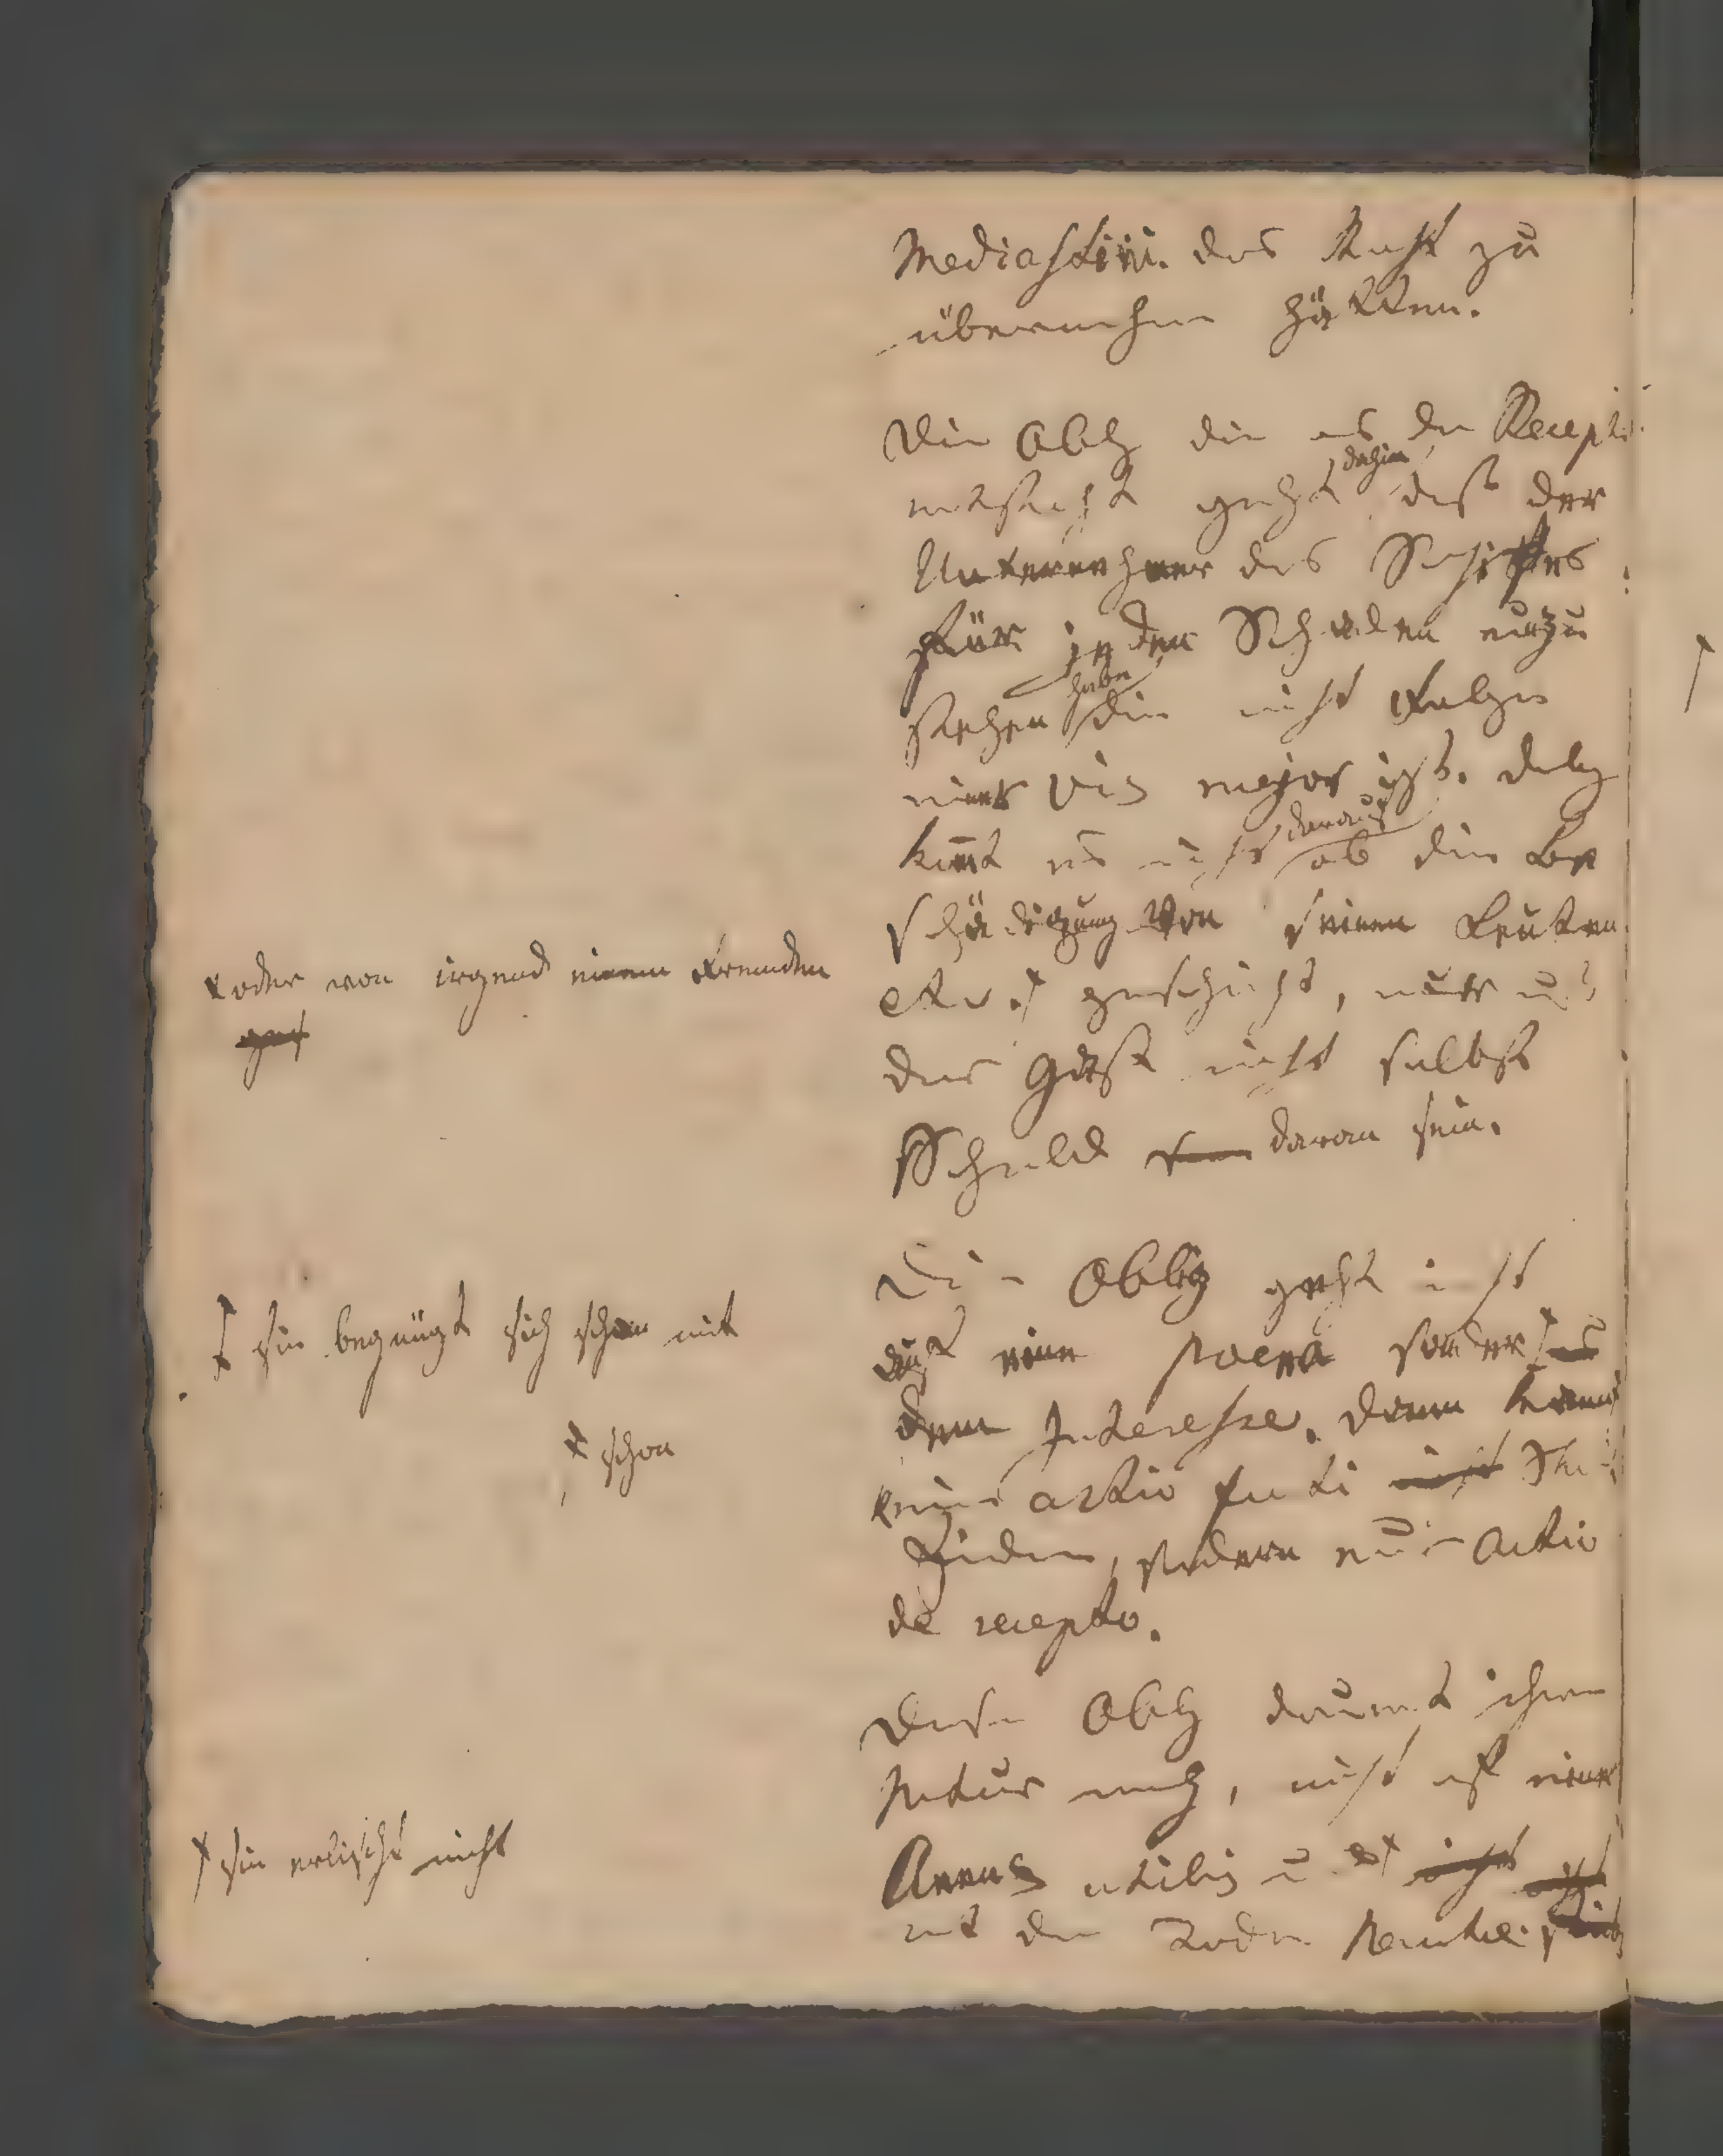 Mediastini. das Recht zu
übernehmen hätten.
Die Oblg die aus dem Recept.
entsteht geht dahin daß der
Unternehmer des Schiffes
für jeden Schaden einzu
stehen habe die nicht Folge
einer vis major ist. dabey
kommt es nicht darauf ob die Be
schädigung von seinen Leuten
etc. geschieht, nur muß
der Gast nicht selbst
Schuld daran sein.
x oder von irgend einem Fremden
Die Oblig geht nicht
auf eine poena sondern
dem Interesse. denn
keine actio furti
finden, sondern nur actio
de recepto.
sie begnügt sich schon mit
x schon
Diese Oblg dauert ihrer
Natur nach, nicht auf einen
Annus utilis u
mit dem Tode
sie erlischt nicht